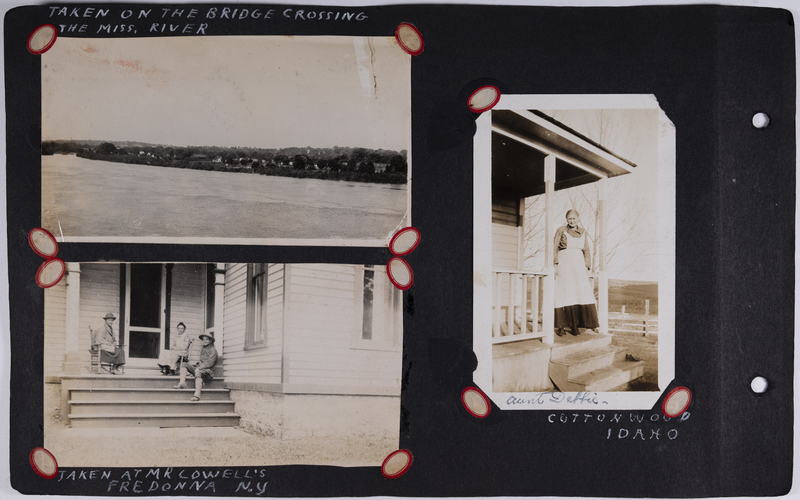 TAKEN ON THE BRIDGE CROSSING
THE MISS. RIVER
TAKEN AT MR COWELL'S
FREDONNA N.Y
aunt Debbie-
COTTONWOOD
IDAHO